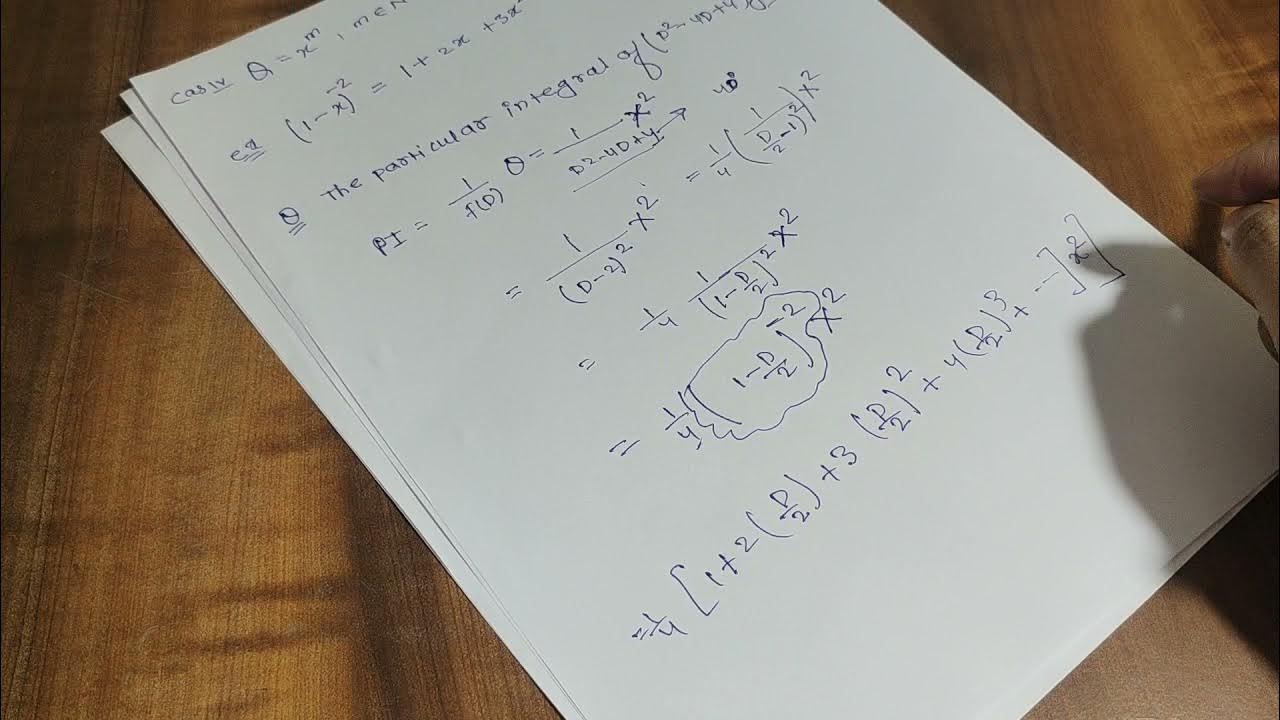 Cas IV Q = x^m, m ∈ N
ex (1-x)^-2 = 1 + 2x + 3x^2
Q The particular integral of (D^2-4D+4)y
PI = 1/f(D) Q = 1/(D^2-4D+4) x^2
= 1/(D-2)^2 x^2 = 1/4 (1/(D/2-1)^2) x^2
= 1/4 1/(1-D/2)^2 x^2
= 1/4 (1-D/2)^-2 x^2
= 1/4 [1+2(D/2)+3(D/2)^2+4(D/2)^3+--]x^2]